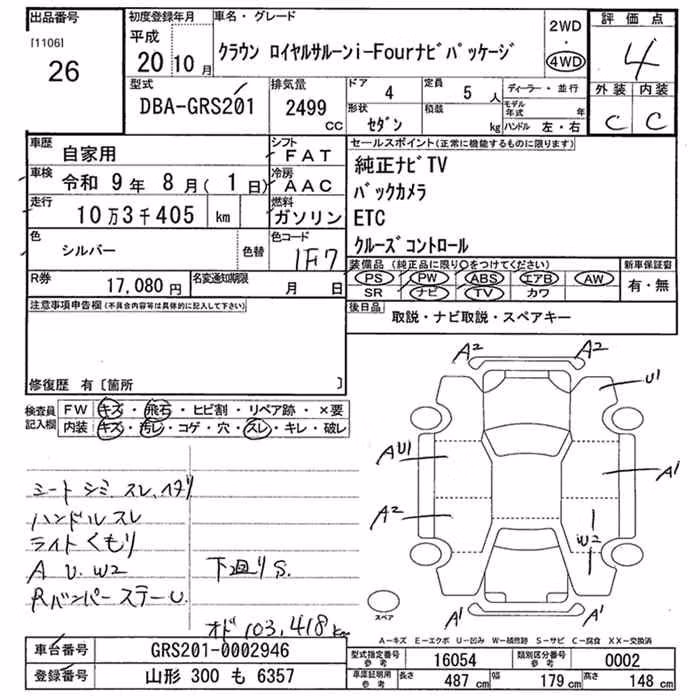 出品番号
[1106]
26
初度登録年月
平成
20 10 月
車名・グレード
クラウン ロイヤルサルーンi-Fourナビパッケージ
2WD
・
4WD
評価点
4
外装 内装
C C
型式
DBA-GRS201
排気量
2499
CC
ドア
4
定員
5 人
形状
セダン
積装
kg
ディーラー・並行
モデル年式 年
ハンドル 左・右
車歴
自家用
シフト
FAT
車検
令和 9年 8月( 1日)
冷房
AAC
走行
10万3千405 km
燃料
ガソリン
色
シルバー
色替
色コード
1F7
R券
17,080円
名変通知期限
月 日
セールスポイント(正常に機能するものに限ります)
純正ナビTV
バックカメラ
ETC
クルーズコントロール
装備品 (純正品に限り○をつけてください)
PS PW ABS エアB AW
SR ナビ TV カワ
新車保証書
有・無
後日品
取説・ナビ取説・スペアキー
注意事項申告欄(不具合内容等は具体的に記入して下さい)
修復歴 有〔箇所 〕
検査員記入欄
FW キズ・飛石・ヒビ割・リペア跡・×要
内装 キズ・汚レ・コゲ・穴・スレ・キレ・破レ
シート シミ スレ ヘタリ
ハンドル スレ
ライト くもり
A U. W2
Rバンパー ステー U.
下廻り S.
オド 103,418 km
A2 A2
U1
AU1
A1
A2
W2
A1 A1
スペア
A-キズ E-エクボ U-凹み W-補修跡 S-サビ C-腐食 XX-交換済
車台番号
GRS201-0002946
登録番号
山形 300 も 6357
型式指定番号
参考
16054
類別区分番号
参考
0002
車庫証明用
参考
長さ
487 cm
幅
179 cm
高さ
148 cm